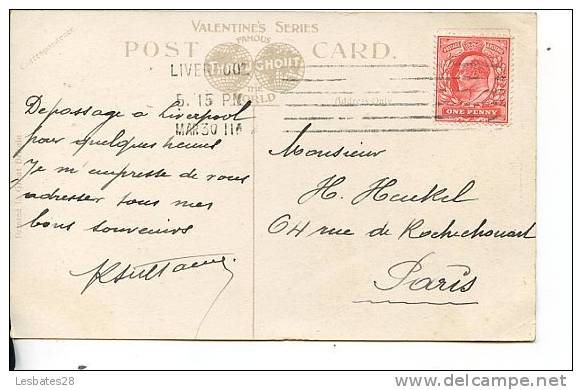 Correspondence.
VALENTINE'S SERIES
FAMOUS
POST CARD.
THROUGHOUT
THE
WORLD
LIVERPOOL
5. 15 PM
MAR 30 11
Address Only.
POSTAGE REVENUE
ONE PENNY
Printed in Great Britain
Depassage a Liverpool
pour quelques heures
Je m'empresse de vous
adresser tous mes
bons souvenirs
Monsieur
H. Henkel
64 rue de Rochechouart
Paris
Lesbates28
www.delcampe.net